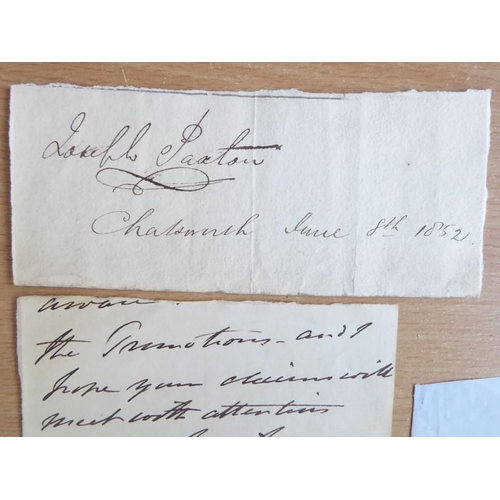 Joseph Paxton
Chatsworth June 8th 1852.
aware.
the Promotions - and I
hope your claims will
meet with attention